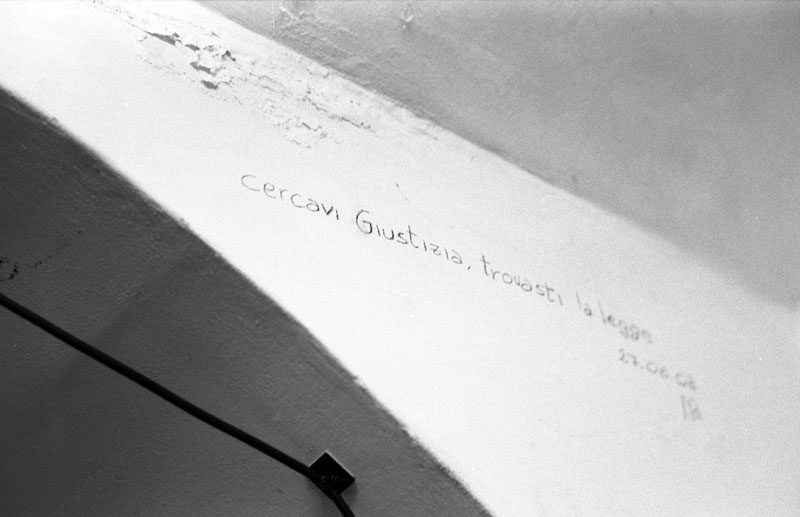 cercavi Giustizia, trovasti la legge
27.06.08